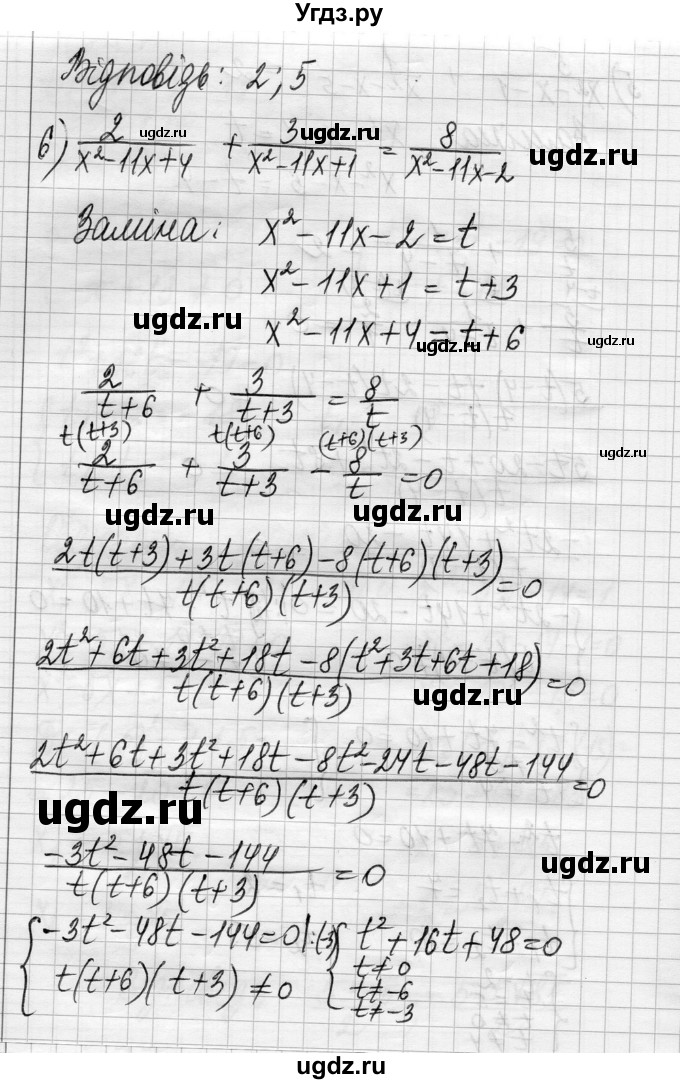 Угдз.ру
Відповідь: 2; 5
6) 2/(x²-11x+4) + 3/(x²-11x+1) = 8/(x²-11x-2)
ugdz.ru ugdz.ru ugdz.ru ugdz.ru
Заміна: x² - 11x - 2 = t
x² - 11x + 1 = t+3
ugdz.ru
x² - 11x + 4 = t + 6
ugdz.ru ugdz.ru
2/(t+6) + 3/(t+3) = 8/t
t(t+3) t(t+6) (t+6)(t+3)
ugdz.ru
2/(t+6) + 3/(t+3) - 8/t = 0
ugdz.ru ugdz.ru
(2t(t+3)+3t(t+6)-8(t+6)(t+3))/(t(t+6)(t+3)) = 0
(2t²+6t+3t²+18t-8(t²+3t+6t+18))/(t(t+6)(t+3)) = 0
ugdz.ru
(2t²+6t+3t²+18t-8t²-24t-48t-144)/(t(t+6)(t+3)) = 0
ugdz.ru
(-3t²-48t-144)/(t(t+6)(t+3)) = 0
ugdz.ru
{ -3t²-48t-144=0 |:(-3) { t²+16t+48=0
t(t+6)(t+3) ≠ 0 t≠0
t≠-6
t≠-3
ugdz.ru